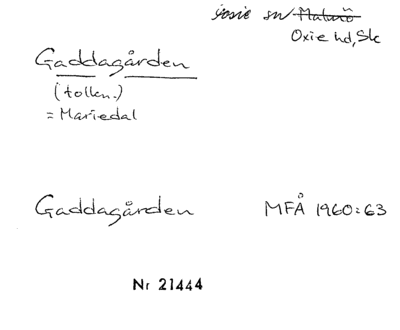 sn Malmö
Oxie hd, Sk
Gaddagården
(tolkn.)
= Mariedal
Gaddagården MFÅ 1960:63
Nr 21444